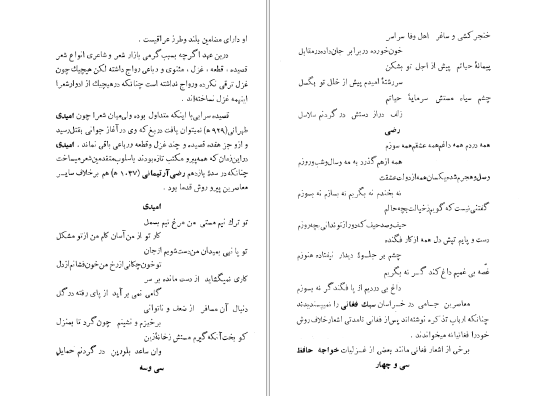 او دارای مضامین بلند وطرز عراقیست .
درین عهد اگرچه بسبب گرمی بازار شعر و شاعری انواع شعر
قصیده ، قطعه ، غزل ، مثنوی و رباعی رواج داشته لکن هیچیك چون
غزل ترقی نکرده ورواج نداشته است چنانکه درهیچیك از ادوار شعرا
اینهمه غزل نساخته‌اند .
قصیده سرایی با اینکه متداول بوده ولی میان شعرا چون امیدی
طهرانی (۹۲۹ ه) نمیتوان یافت دریغ که وی در آغاز جوانی بقتل رسید
و ازو جز هفده قصیده و چند غزل وقطعه ورباعی باقی نماند . امیدی
در این زمان که همه پیرو مکتب تازه بودند باسلوب متقدمین شعر میساخت
چنانکه در سدهٔ یازدهم رضی آرتیمانی (۱۰۳۷ ه) هم برخلاف سایر
معاصرین پیرو روش قدما بود .
امیدی
تو ترك نیم مستی من مرغ نیم بسمل
کار تو از من آسان کام من از تو مشکل
تو پا نهی بمیدان من دست شویم از جان
تو خون چکانی از رخ من خون فشانم از دل
کاری نمیگشاید از دست مانده بر سر
گامی نمی بر آید از پای رفته در گل
دنبال آن مسافر از ضعف و ناتوانی
برخیزم و نشینم چون گرد تا بمنزل
کو بخت آنکه گیرم مستش زخانهٔ زین
وان ساعد بلورین در گردنم حمایل
سی وسه
خنجر کشی و ساغر اهل وفا سراسر
خون خورده در برابر جان داده در مقابل
پیمانهٔ حیاتم پیش از اجل تو بشکن
سررشتهٔ امیدم پیش از خلل تو بگسل
چشم سیاه مستش سرمایهٔ حیاتم
زلف دراز دستش در گردنم سلاسل
رضی
همه دردم همه داغم همه عشقم همه سوزم
همه در هم گذرد به مه وسال وشب وروزم
وصل وهجرم شده یکسان همه از دولت عشقت
نه بخندم نه بگریم نه بسازم نه بسوزم
گفتنی نیست که گویم زخیالت بچه حالم
حیف وصد حیف که دور از تو ندانی بچه روزم
دست و پایم تپش دل همه از کار فگنده
چشم بر جلوهٔ دیدار نیفتاده هنوزم
غصه بی غمیم داغ کند گر نه بگریم
داغ بی دردیم از پا فگند گر نه بسوزم
معاصرین جامی در خراسان سبك فغانی را نمیپسندیدند
چنانکه ارباب تذکره نوشته‌اند پس از فغانی تامدتی اشعار خلاف روش
خود را فغانیانه میخواندند .
برخی از اشعار فغانی مانند بعضی از غزلیات خواجه حافظ
سی و چهار